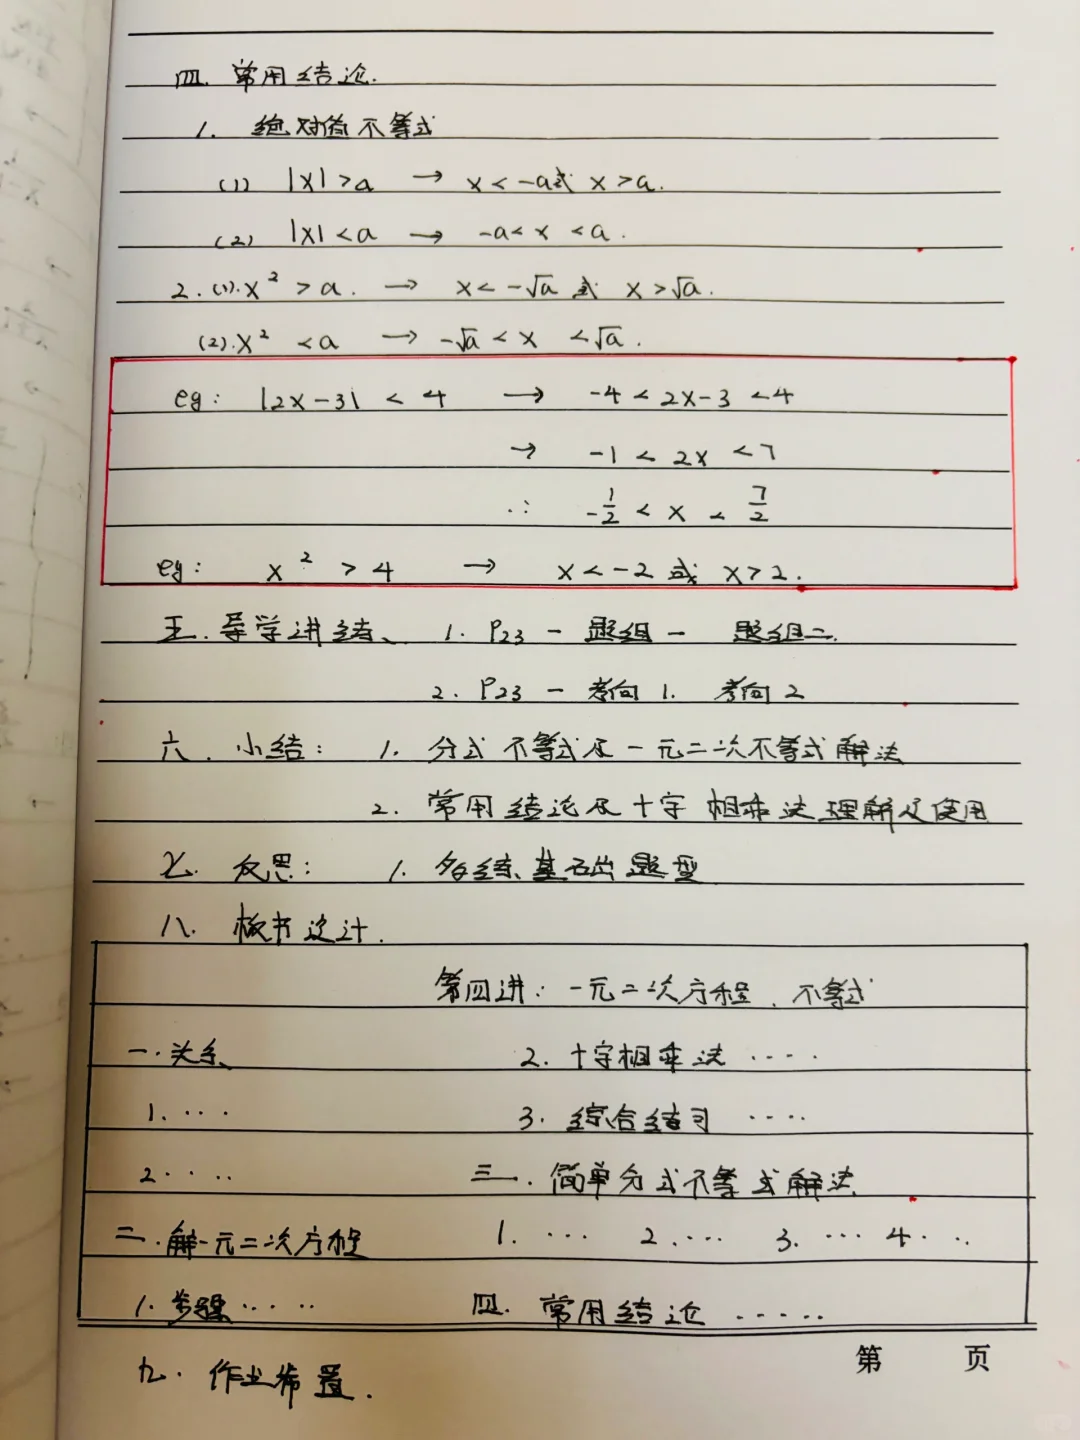 四. 常用结论.
1. 绝对值不等式
(1) |x|>a → x<-a或 x>a.
(2) |x|<a → -a<x<a.
2. (1). x² >a. → x<-√a 或 x>√a.
(2). x² <a → -√a<x<√a.
eg: |2x-3|<4 → -4<2x-3<4
→ -1<2x<7
∴ -1/2<x<7/2
eg: x²>4 → x<-2 或 x>2.
五. 导学讲练、 1. P23 - 题组一 题组二.
2. P23 - 考向1. 考向2
六. 小结: 1. 分式不等式及一元二次不等式解法
2. 常用结论及十字相乘法理解及使用
七. 反思: 1. 多练基础题型
八. 板书设计.
第四讲: 一元二次方程、不等式
一. 关系 2. 十字相乘法 ....
1. ... 3. 综合练习 ....
2. ... 三. 简单分式不等式解法
二. 解一元二次方程 1. ... 2. ... 3. ... 4. ...
1. 步骤 ..... 四. 常用结论 .....
第 页
九. 作业布置.